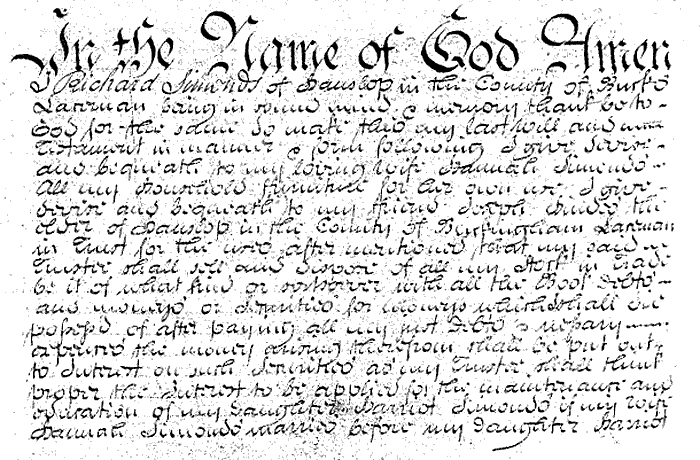 In the Name of God Amen
I Richard Simonds of Hanslop in the County of Bucks
Laceman being in sound mind & memory thank be to
God for the same Do make this my last Will and
Testament in manner & form following I give devise
and bequeath to my loving Wife Hannah Simonds
All my Household furniture for her own use I give
devise and bequeath to my friend Joseph the
elder of Hanslop in the County of Buckingham Laceman
in Trust for the uses after mentioned that my said
Trustee shall sell and dispose of all my Stock in Trade
be it of what kind or soever with all the Book Debts
and moneys or Securities for moneys which I shall be
possess'd of after paying all my just Debts & nessary
expences the money arising therefrom shall be put out
to Interest on such Securities as my Trustee shall think
proper the Interest to be applied for the maintenance and
education of my Daughter Harriot Simonds if my Wife
Hannah Simonds marries before my Daughter Harriot